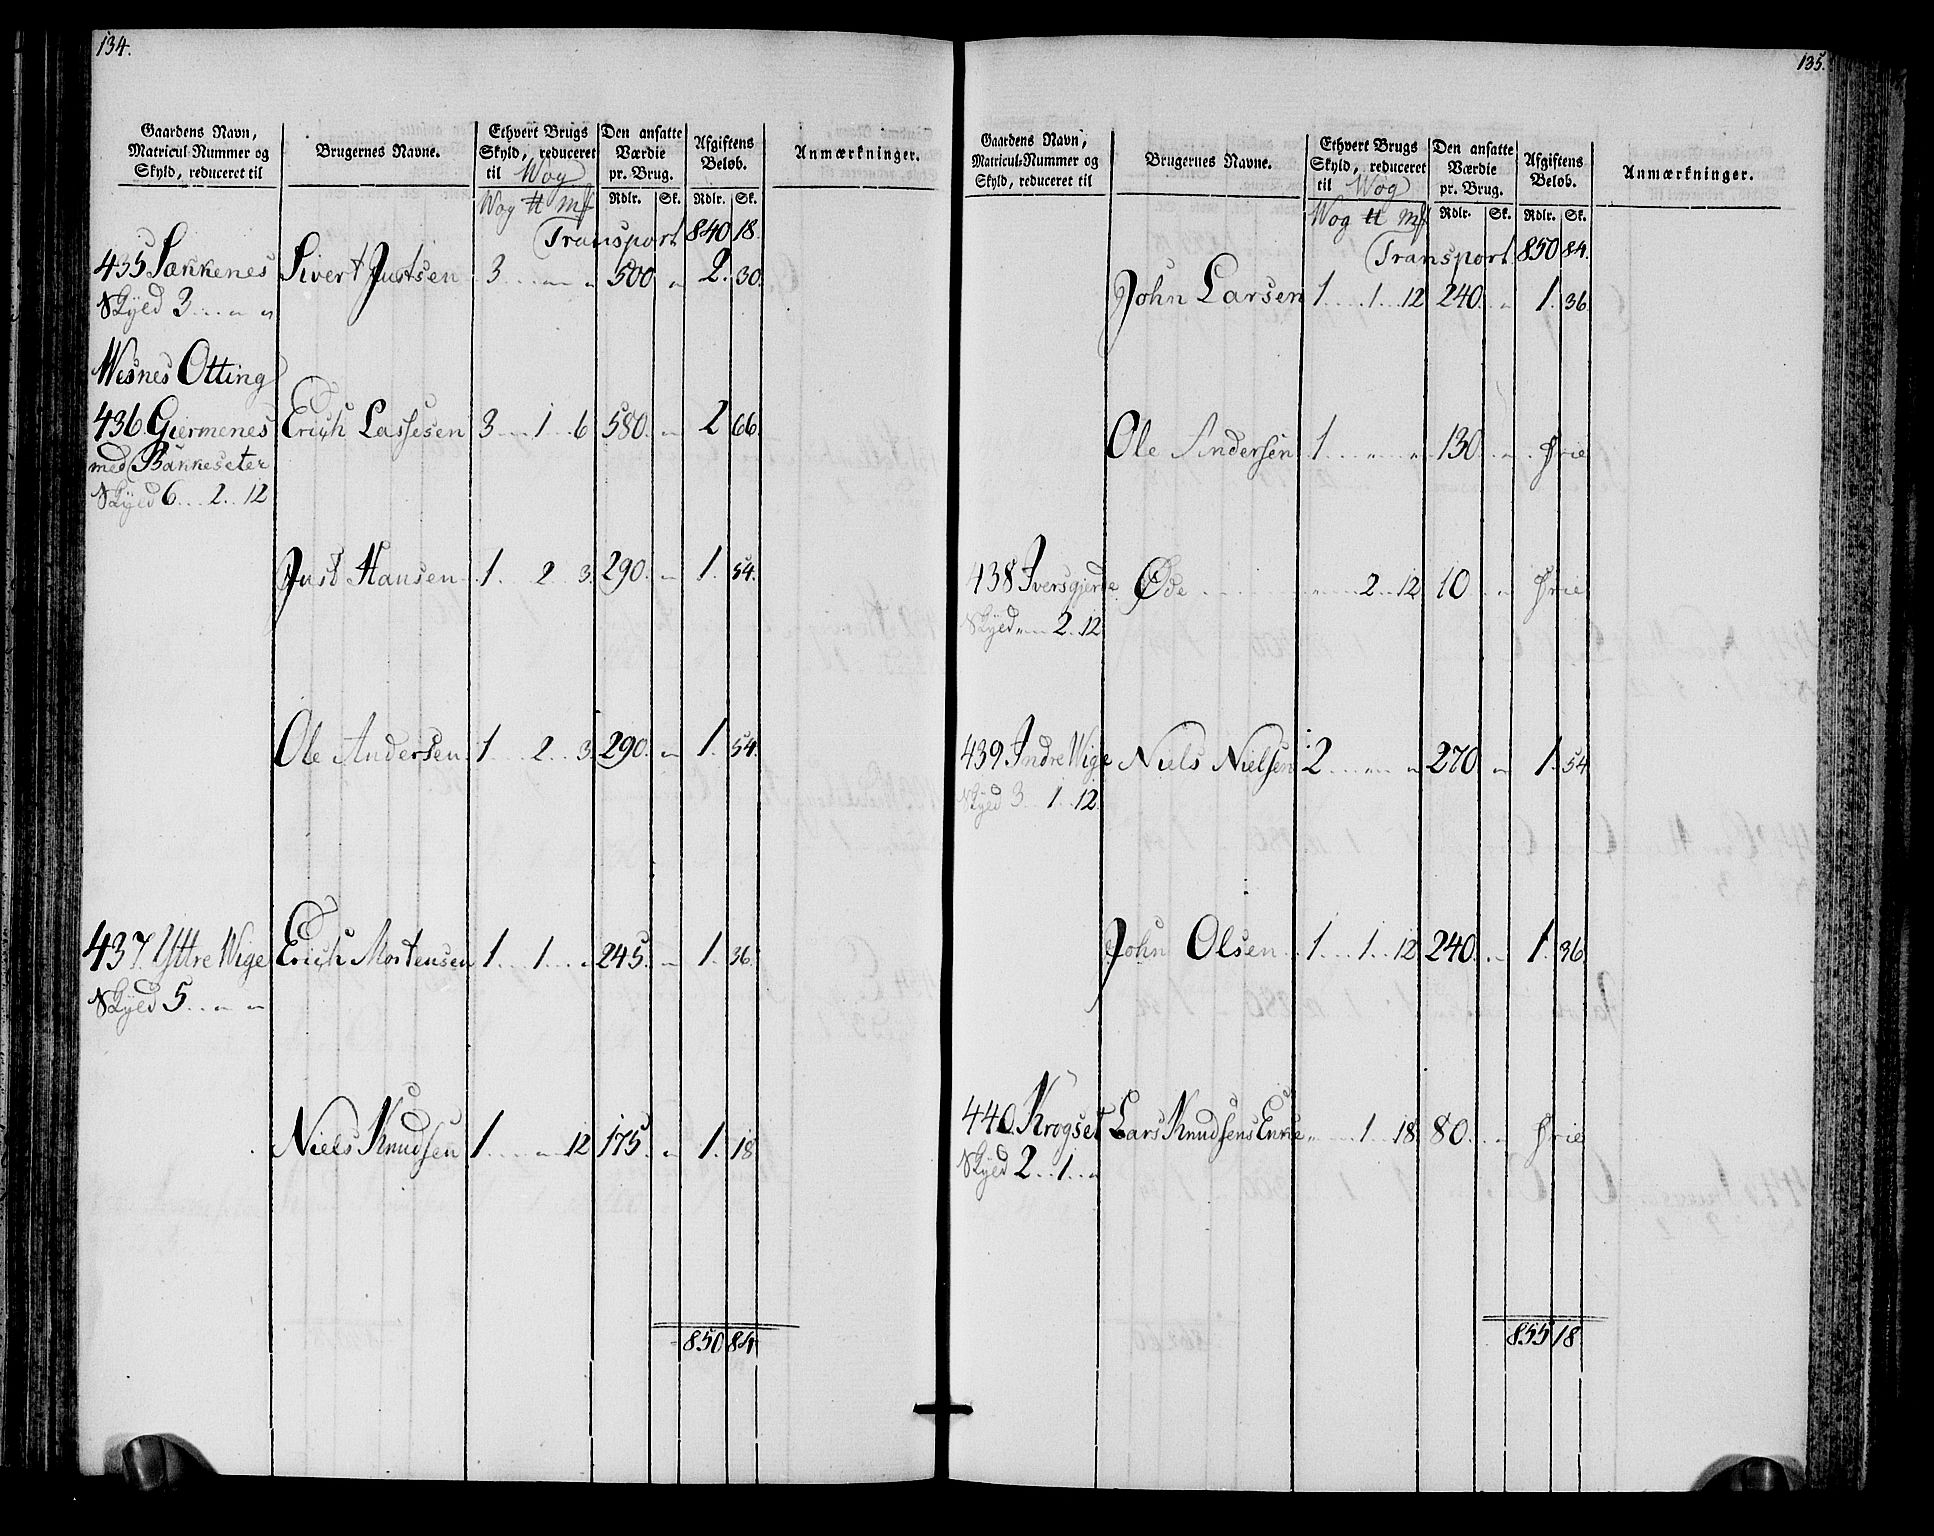 134.
Gaardens Navn, Matricul-Nummer og Skyld, reduceret til
Brugernes Navne.
Ethvert Brugs Skyld, reduceret til Wog
Den ansatte Værdie pr. Brug.
Afgiftens Beløb.
Anmærkninger.
Wog ℔ Mk Rdlr. Sk. Rdlr. Sk.
Transport 840 18.
435 Sækkenes Sivert Justsen 3 „ „ 500 „ 2. 30.
Skyld 3 „ „
Wisnes Otting
436. Giermenes Erich Lassesen 3 1 6 580. „ 2 66.
med Bakkeseter
Skyld 6 2 12
Just Hansen 1 2 3. 290. „ 1. 54.
Ole Andersen 1 2 3. 290. „ 1. 54.
437. Yttre Wige Erich Mortensen 1 1 „ 245. „ 1. 36.
Skyld 5 „ „
Niels Knudsen 1 „ 12 175. „ 1. 18.
850 84
135.
Gaardens Navn, Matricul-Nummer og Skyld, reduceret til
Brugernes Navne.
Ethvert Brugs Skyld, reduceret til Wog
Den ansatte Værdie pr. Brug.
Afgiftens Beløb.
Anmærkninger.
Wog ℔ Mk Rdlr. Sk. Rdlr. Sk.
Transport 850 84.
John Larsen 1 1 12 240. „ 1. 36.
Ole Andersen 1 „ „ 130. „ frie
438 Iversgjerde Øde „ 2 12 10 „ frie
Skyld „ 2 12
439. Indre Wige Niels Nielsen 2 „ „ 270 „ 1. 54
Skyld 3 1 12.
John Olsen 1 1 12 240. „ 1. 36.
440. Krogset Lars Knudsens Enke „ 1 18 80. „ frie
Skyld 2 1 „
855 18